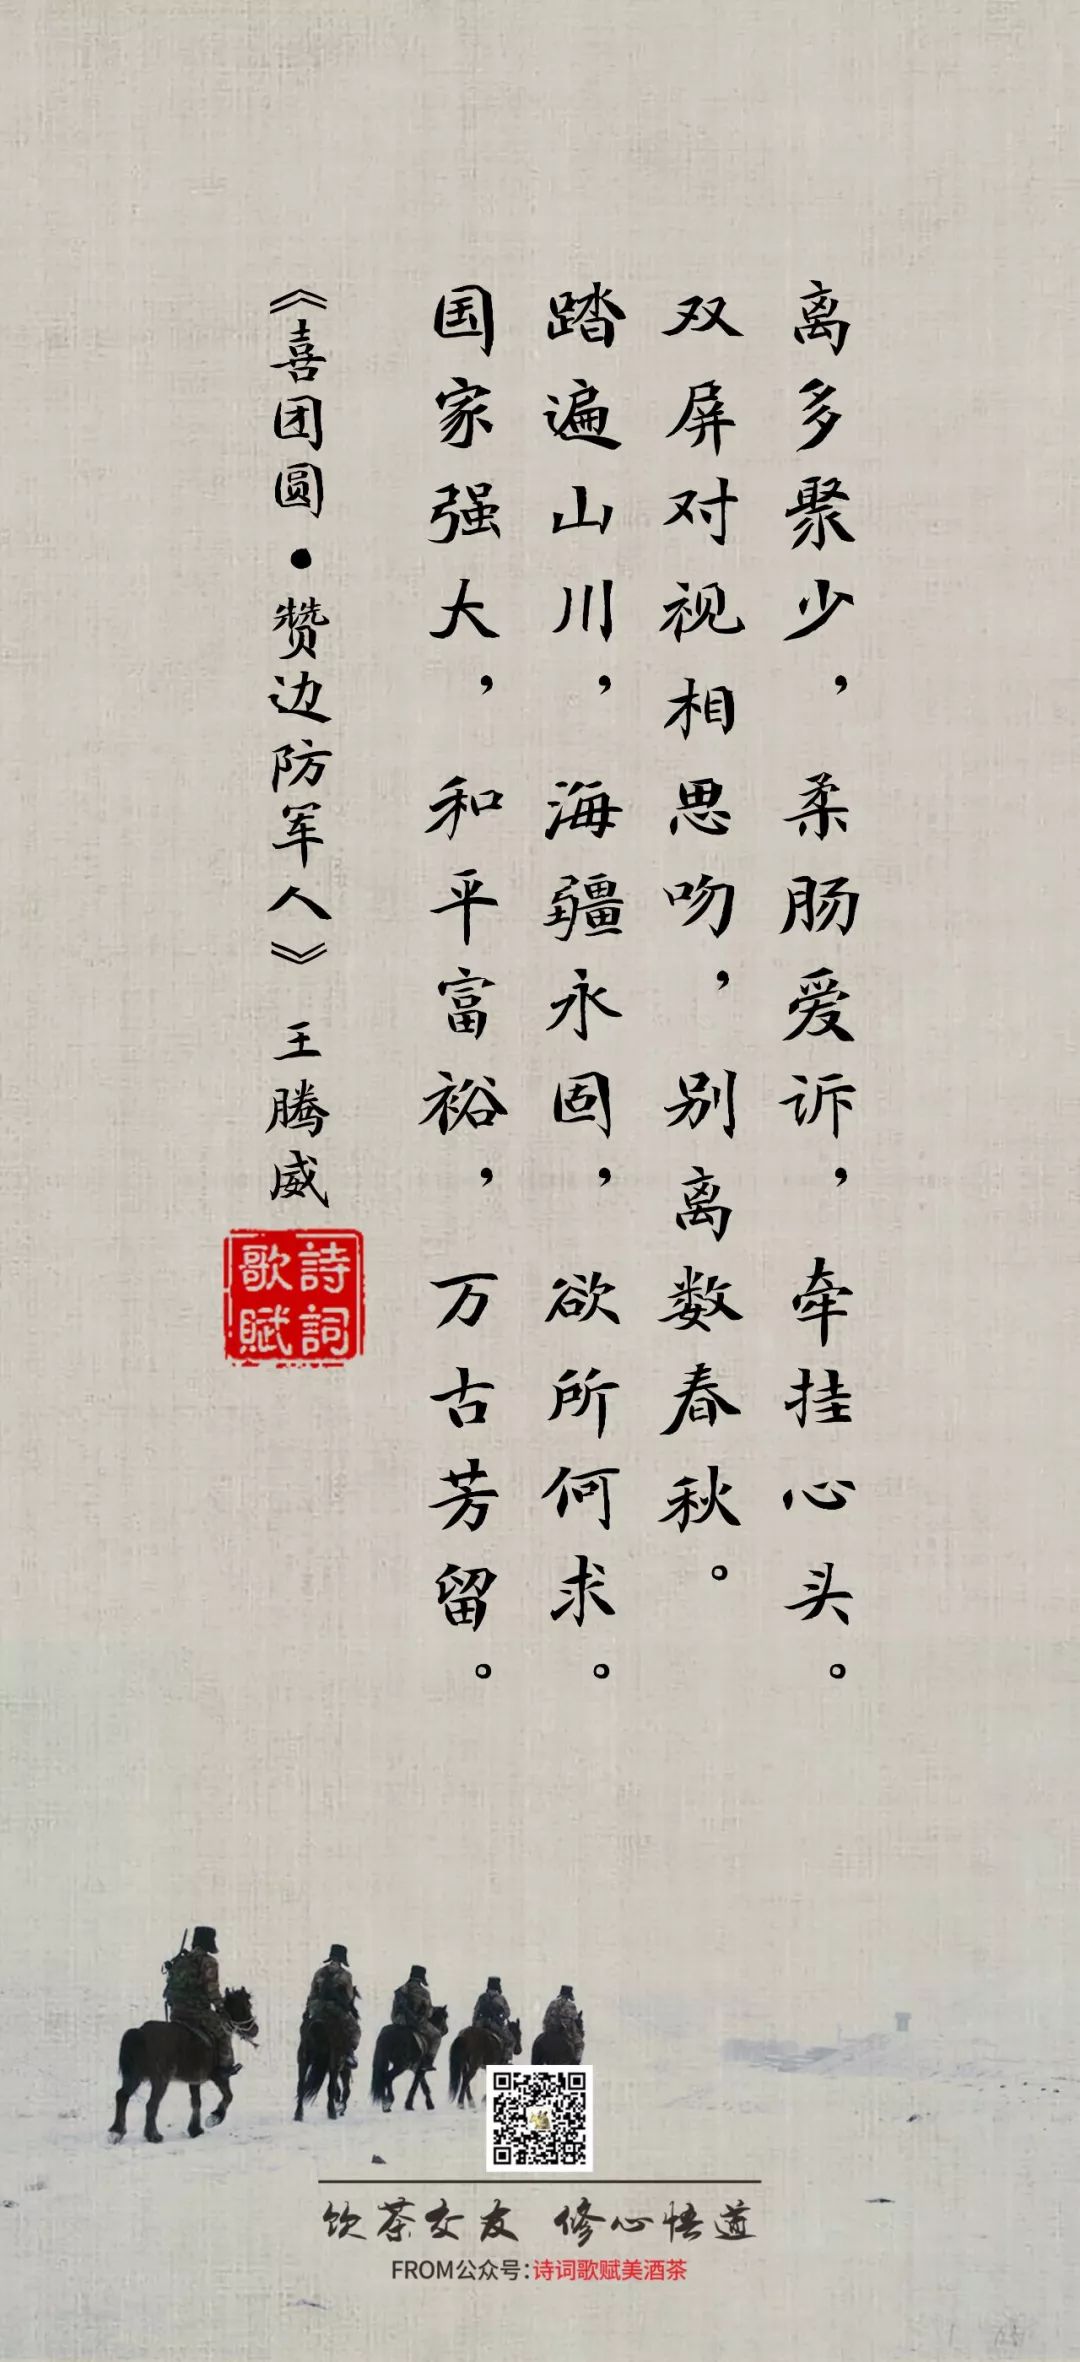 离多聚少，柔肠爱诉，牵挂心头。
双屏对视相思吻，别离数春秋。
踏遍山川，海疆永固，欲所何求。
国家强大，和平富裕，万古芳留。
《喜团圆·赞边防军人》 王腾威
詩詞歌賦
饮茶交友 修心悟道
FROM公众号：诗词歌赋美酒茶